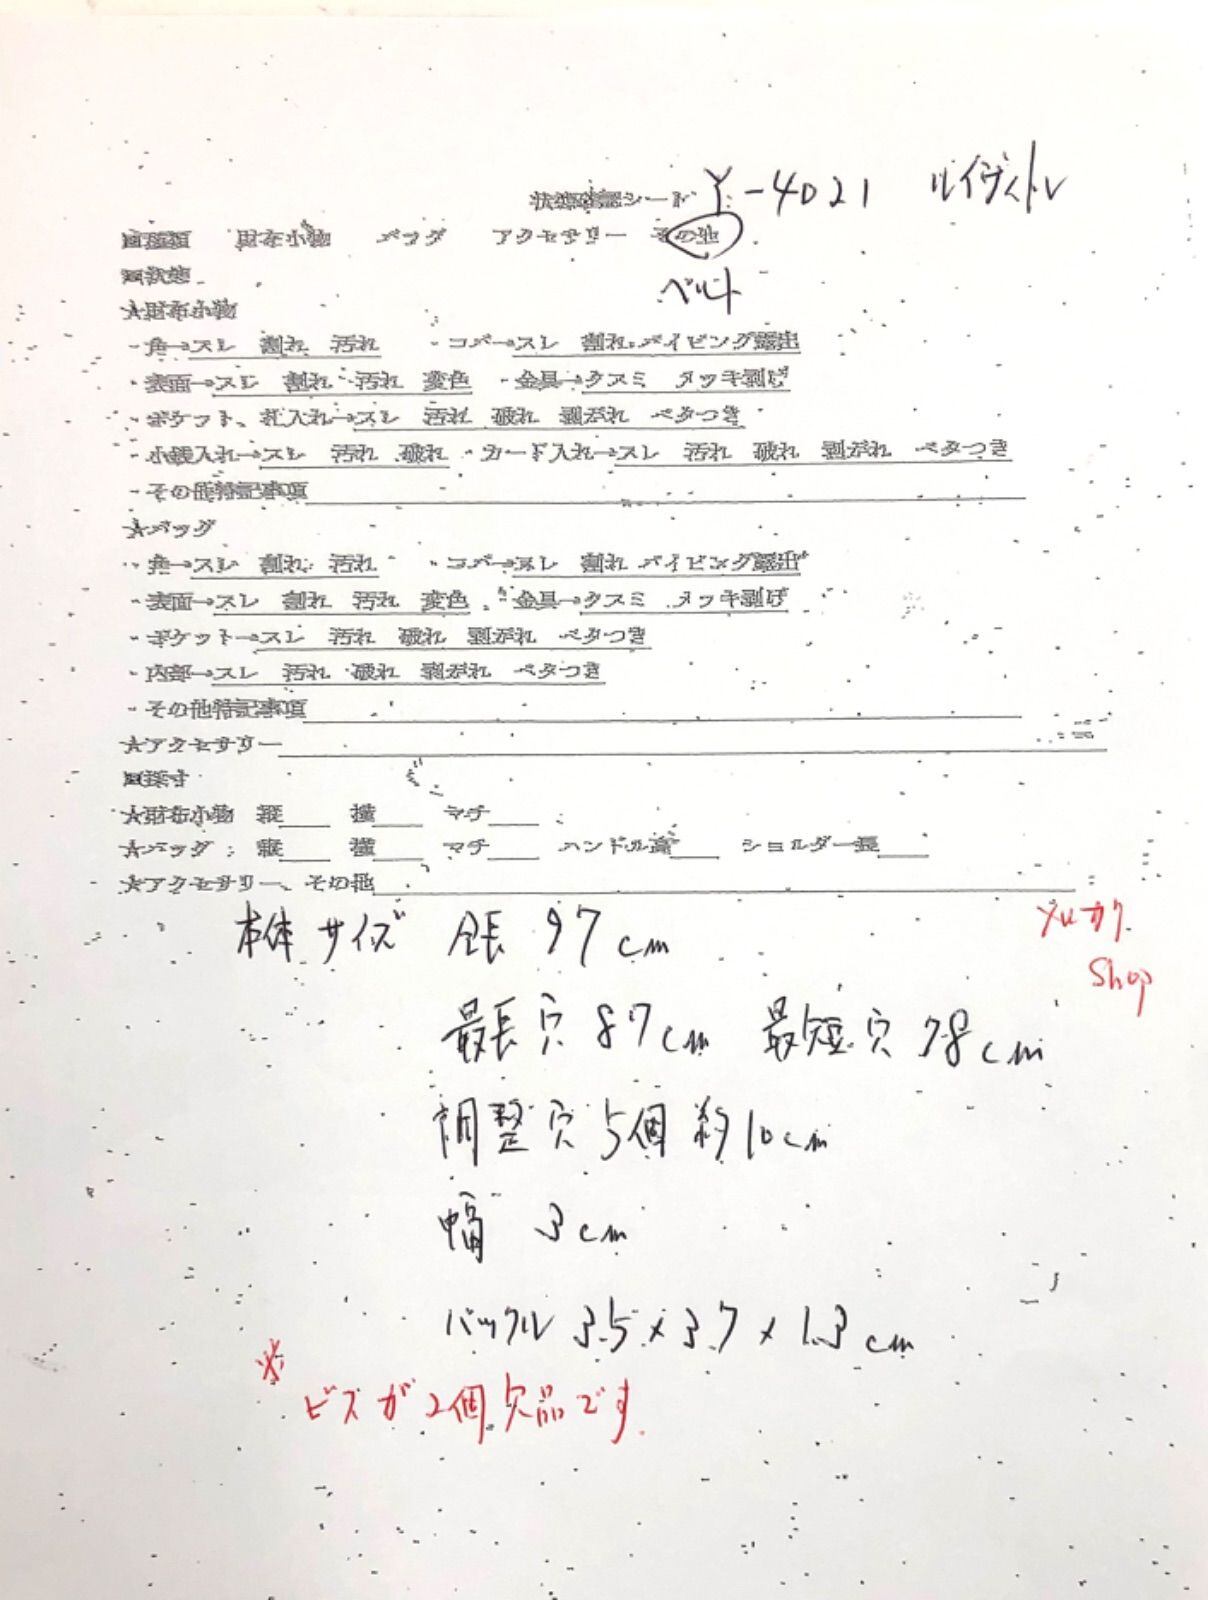 状態確認シート Y-4021 ルイヴィトン
■種類 財布小物 バッグ アクセサリー その他
ベルト
■状態
★財布小物
・角→スレ 割れ 汚れ ・コバ→スレ 割れ パイピング露出
・表面→スレ 割れ 汚れ 変色 ・金具→クスミ メッキ剥げ
・ポケット、札入れ→スレ 汚れ 破れ 剥がれ ベタつき
・小銭入れ→スレ 汚れ 破れ ・カード入れ→スレ 汚れ 破れ 剥がれ ベタつき
・その他特記事項
★バッグ
・角→スレ 割れ 汚れ ・コバ→スレ 割れ パイピング露出
・表面→スレ 割れ 汚れ 変色 ・金具→クスミ メッキ剥げ
・ポケット→スレ 汚れ 破れ 剥がれ ベタつき
・内部→スレ 汚れ 破れ 剥がれ ベタつき
・その他特記事項
★アクセサリー
■採寸
★財布小物 縦 横 マチ
★バッグ 縦 横 マチ ハンドル高 ショルダー長
★アクセサリー、その他
本体サイズ 全長 97cm
Shop
最長穴 87cm 最短穴 78cm
調整穴 5個 約10cm
幅 3cm
バックル 3.5×3.7×1.3cm
※ビスが2個欠品です